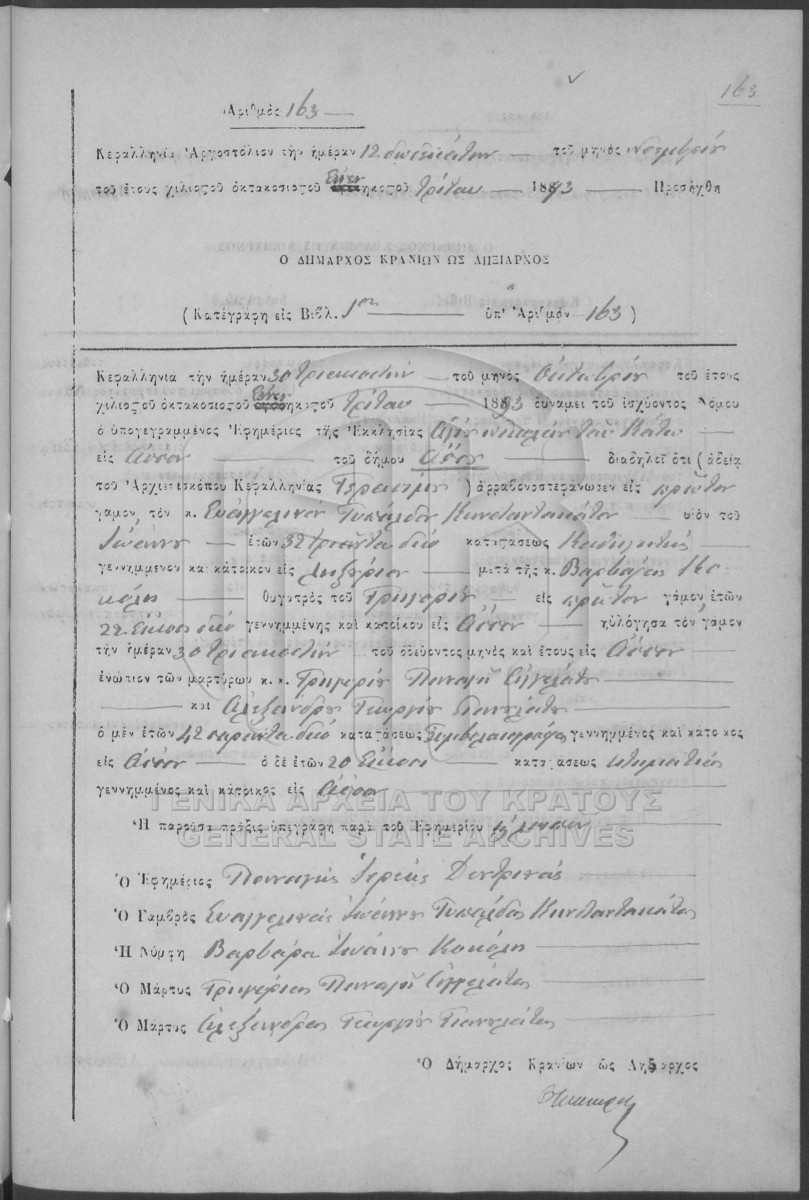 163
Ἀριθμὸς 163
Κεφαλληνία Ἀργοστόλιον τὴν ἡμέραν 12 δωδεκάτην τοῦ μηνὸς Νοεμβρίου
τοῦ ἔτους χιλιοστοῦ ὀκτακοσιοστοῦ Ἐνενηκοστοῦ τρίτου 1893 Προσήχθη
Ο ΔΗΜΑΡΧΟΣ ΚΡΑΝΙΩΝ ΩΣ ΛΗΞΙΑΡΧΟΣ
(Κατεγράφη εἰς Βιβλ. 1ον ὑπ' Ἀριθμὸν 163)
Κεφαλληνία τὴν ἡμέραν 30 τριακοστήν τοῦ μηνὸς Ὀκτωβρίου τοῦ ἔτους
χιλιοστοῦ ὀκτακοσιοστοῦ Ἐνενηκοστοῦ τρίτου 1893 δυνάμει τοῦ ἰσχύοντος Νόμου
ὁ ὑπογεγραμμένος Ἐφημέριος τῆς Ἐκκλησίας Ἁγίου Νικολάου τοῦ Κάτω
εἰς Ἄσσον τοῦ δήμου Ἄσσου διαδηλοῖ ὅτι (ἀδείᾳ
τοῦ Ἀρχιεπισκόπου Κεφαλληνίας Γερασίμου) ἀρραβωνοστεφάνωσεν εἰς πρῶτον
γάμον τὸν κ. Εὐαγγελινόν Τυπάλδον Κωνσταντακάτον υἱὸν τοῦ
Ἰωάννου ἐτῶν 32 τριάντα δύο καταστάσεως Καθηγητής
γεννημμένον καὶ κάτοικον εἰς Ληξούριον μετὰ τῆς κ. Βαρβάρας Κο
κόλη θυγατρὸς τοῦ Γρηγορίου εἰς πρῶτον γάμον ἐτῶν
22 εἴκοσι δύο γεννημμένης καὶ κατοίκου εἰς Ἄσσον ηὐλόγησα τὸν γάμον
τὴν ἡμέραν 30 τριακοστήν τοῦ ὁδεύοντος μηνὸς καὶ ἔτους εἰς Ἄσσον
ἐνώπιον τῶν μαρτύρων κ. κ. Γρηγορίου Παναγῆ Ἀγγελάτου
καὶ Ἀλεξάνδρου Γεωργίου
ὁ μὲν ἐτῶν 42 σαράντα δύο καταστάσεως Συμβολαιογράφος γεννημμένος καὶ κάτοικος
εἰς Ἄσσον ὁ δὲ ἐτῶν 20 Εἴκοσι καταστάσεως κτηματίας
γεννημμένος καὶ κάτοικος εἰς Ἄσσον
Ἡ παροῦσα πρᾶξις ὑπεγράφη παρὰ τοῦ Ἐφημερίου
ΓΕΝΙΚΑ ΑΡΧΕΙΑ ΤΟΥ ΚΡΑΤΟΥΣ
GENERAL STATE ARCHIVES
Ὁ Ἐφημέριος Παναγῆς Ἱερεὺς
Ὁ Γαμβρὸς Εὐαγγελινός Ἰωάννου Τυπάλδος Κωνσταντακάτος
Ἡ Νύμφη Βαρβάρα Ἰωάννου Κοκόλη
Ὁ Μάρτυς Γρηγόριος Παναγῆ Ἀγγελάτος
Ὁ Μάρτυς Ἀλέξανδρος Γεωργίου
Ὁ Δήμαρχος Κρανίων ὡς Ληξίαρχος